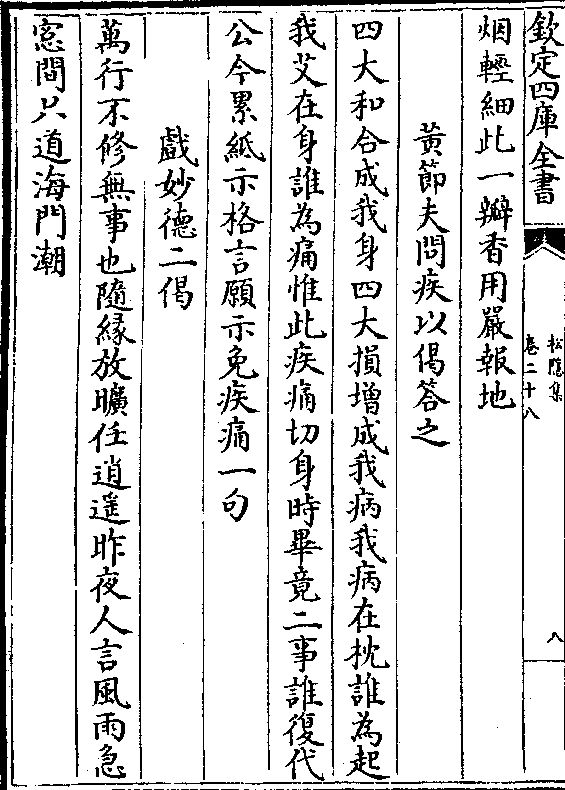 欽定四庫全書
松隠集
卷二十八
八
烟輕細此一瓣香用嚴報地
黄節夫問疾以偈答之
四大和合成我身四大損增成我病我病在枕誰為起
我艾在身誰為痛惟此疾痛切身時畢竟二事誰復代
公今累紙示格言願示免疾痛一句
戲妙德二偈
萬行不修無事也隨縁放曠任逍遥昨夜人言風雨急
窓間只道海門潮